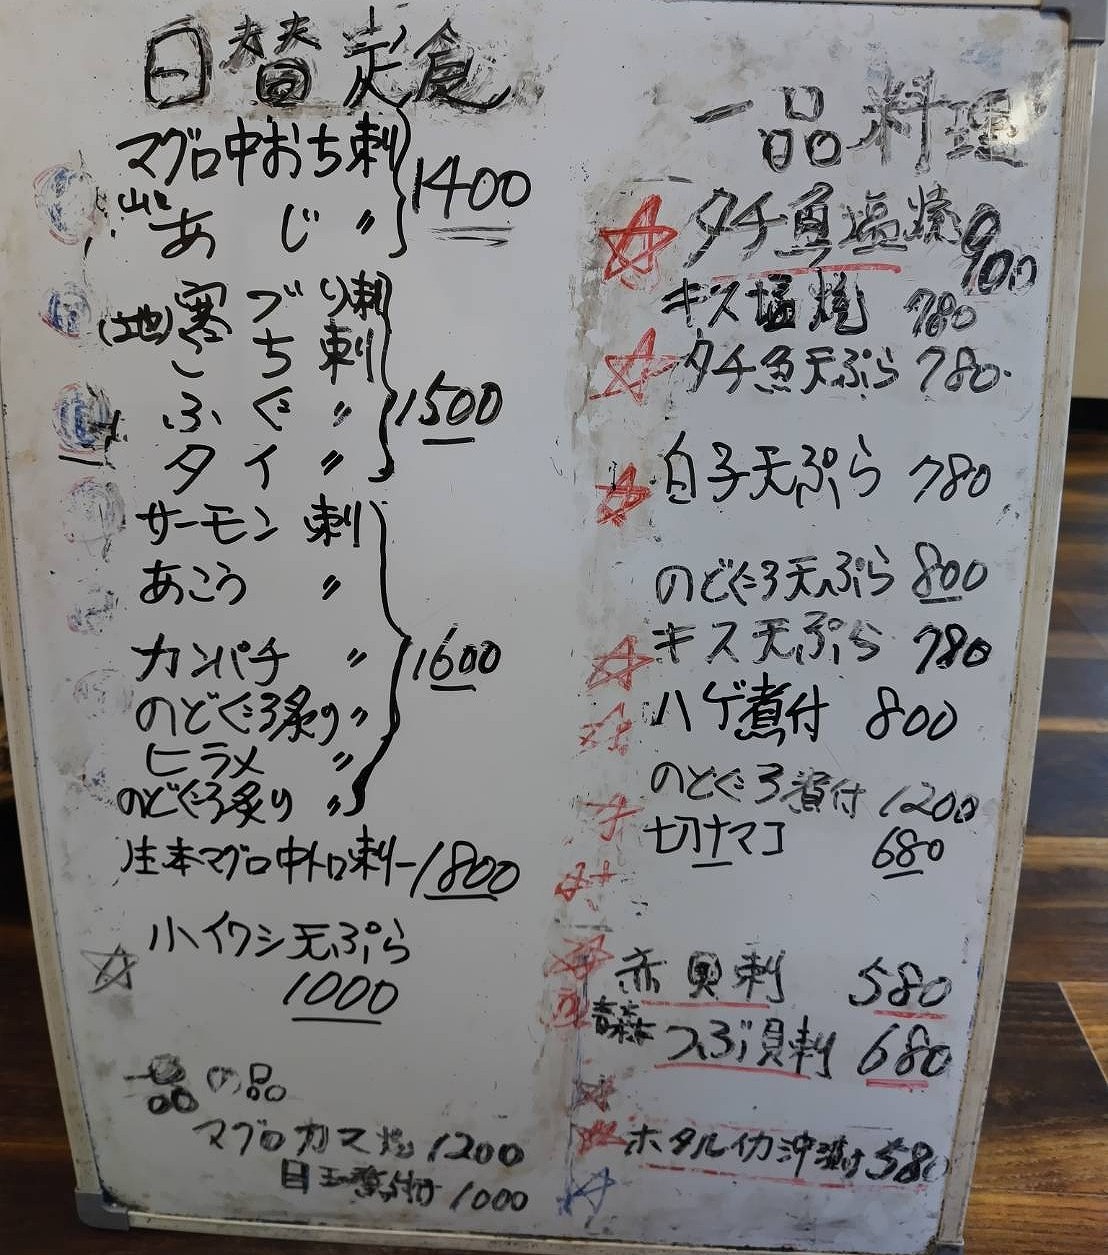 日替定食
マグロ中おち刺
あじ〃
1400
(地)寒ブリ刺
こち刺
ふぐ〃
タイ〃
1500
サーモン刺
あこう〃
カンパチ〃
のどぐろ炙り〃
ヒラメ〃
のどぐろ炙り〃
1600
生本マグロ中トロ刺ー1800
小イワシ天ぷら
1000
の品
マグロカマ焼 1200
目玉煮付 1000
一品料理
タチ魚塩焼 900
キス塩焼 780
タチ魚天ぷら 780
白子天ぷら 780
のどぐろ天ぷら 800
キス天ぷら 780
ハゲ煮付 800
のどぐろ煮付 1200
切ナマコ 680
赤貝刺 580
青森 つぶ貝刺 680
ホタルイカ沖漬け 580